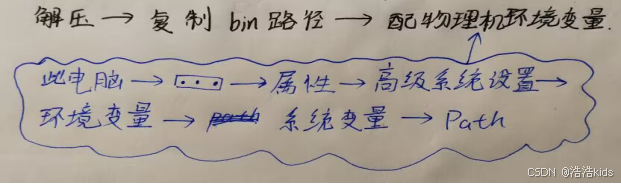 解压 → 复制 bin 路径 → 配物理机环境变量.
此电脑 → ... → 属性 → 高级系统设置 →
环境变量 → 系统变量 → Path
CSDN @浩浩kids